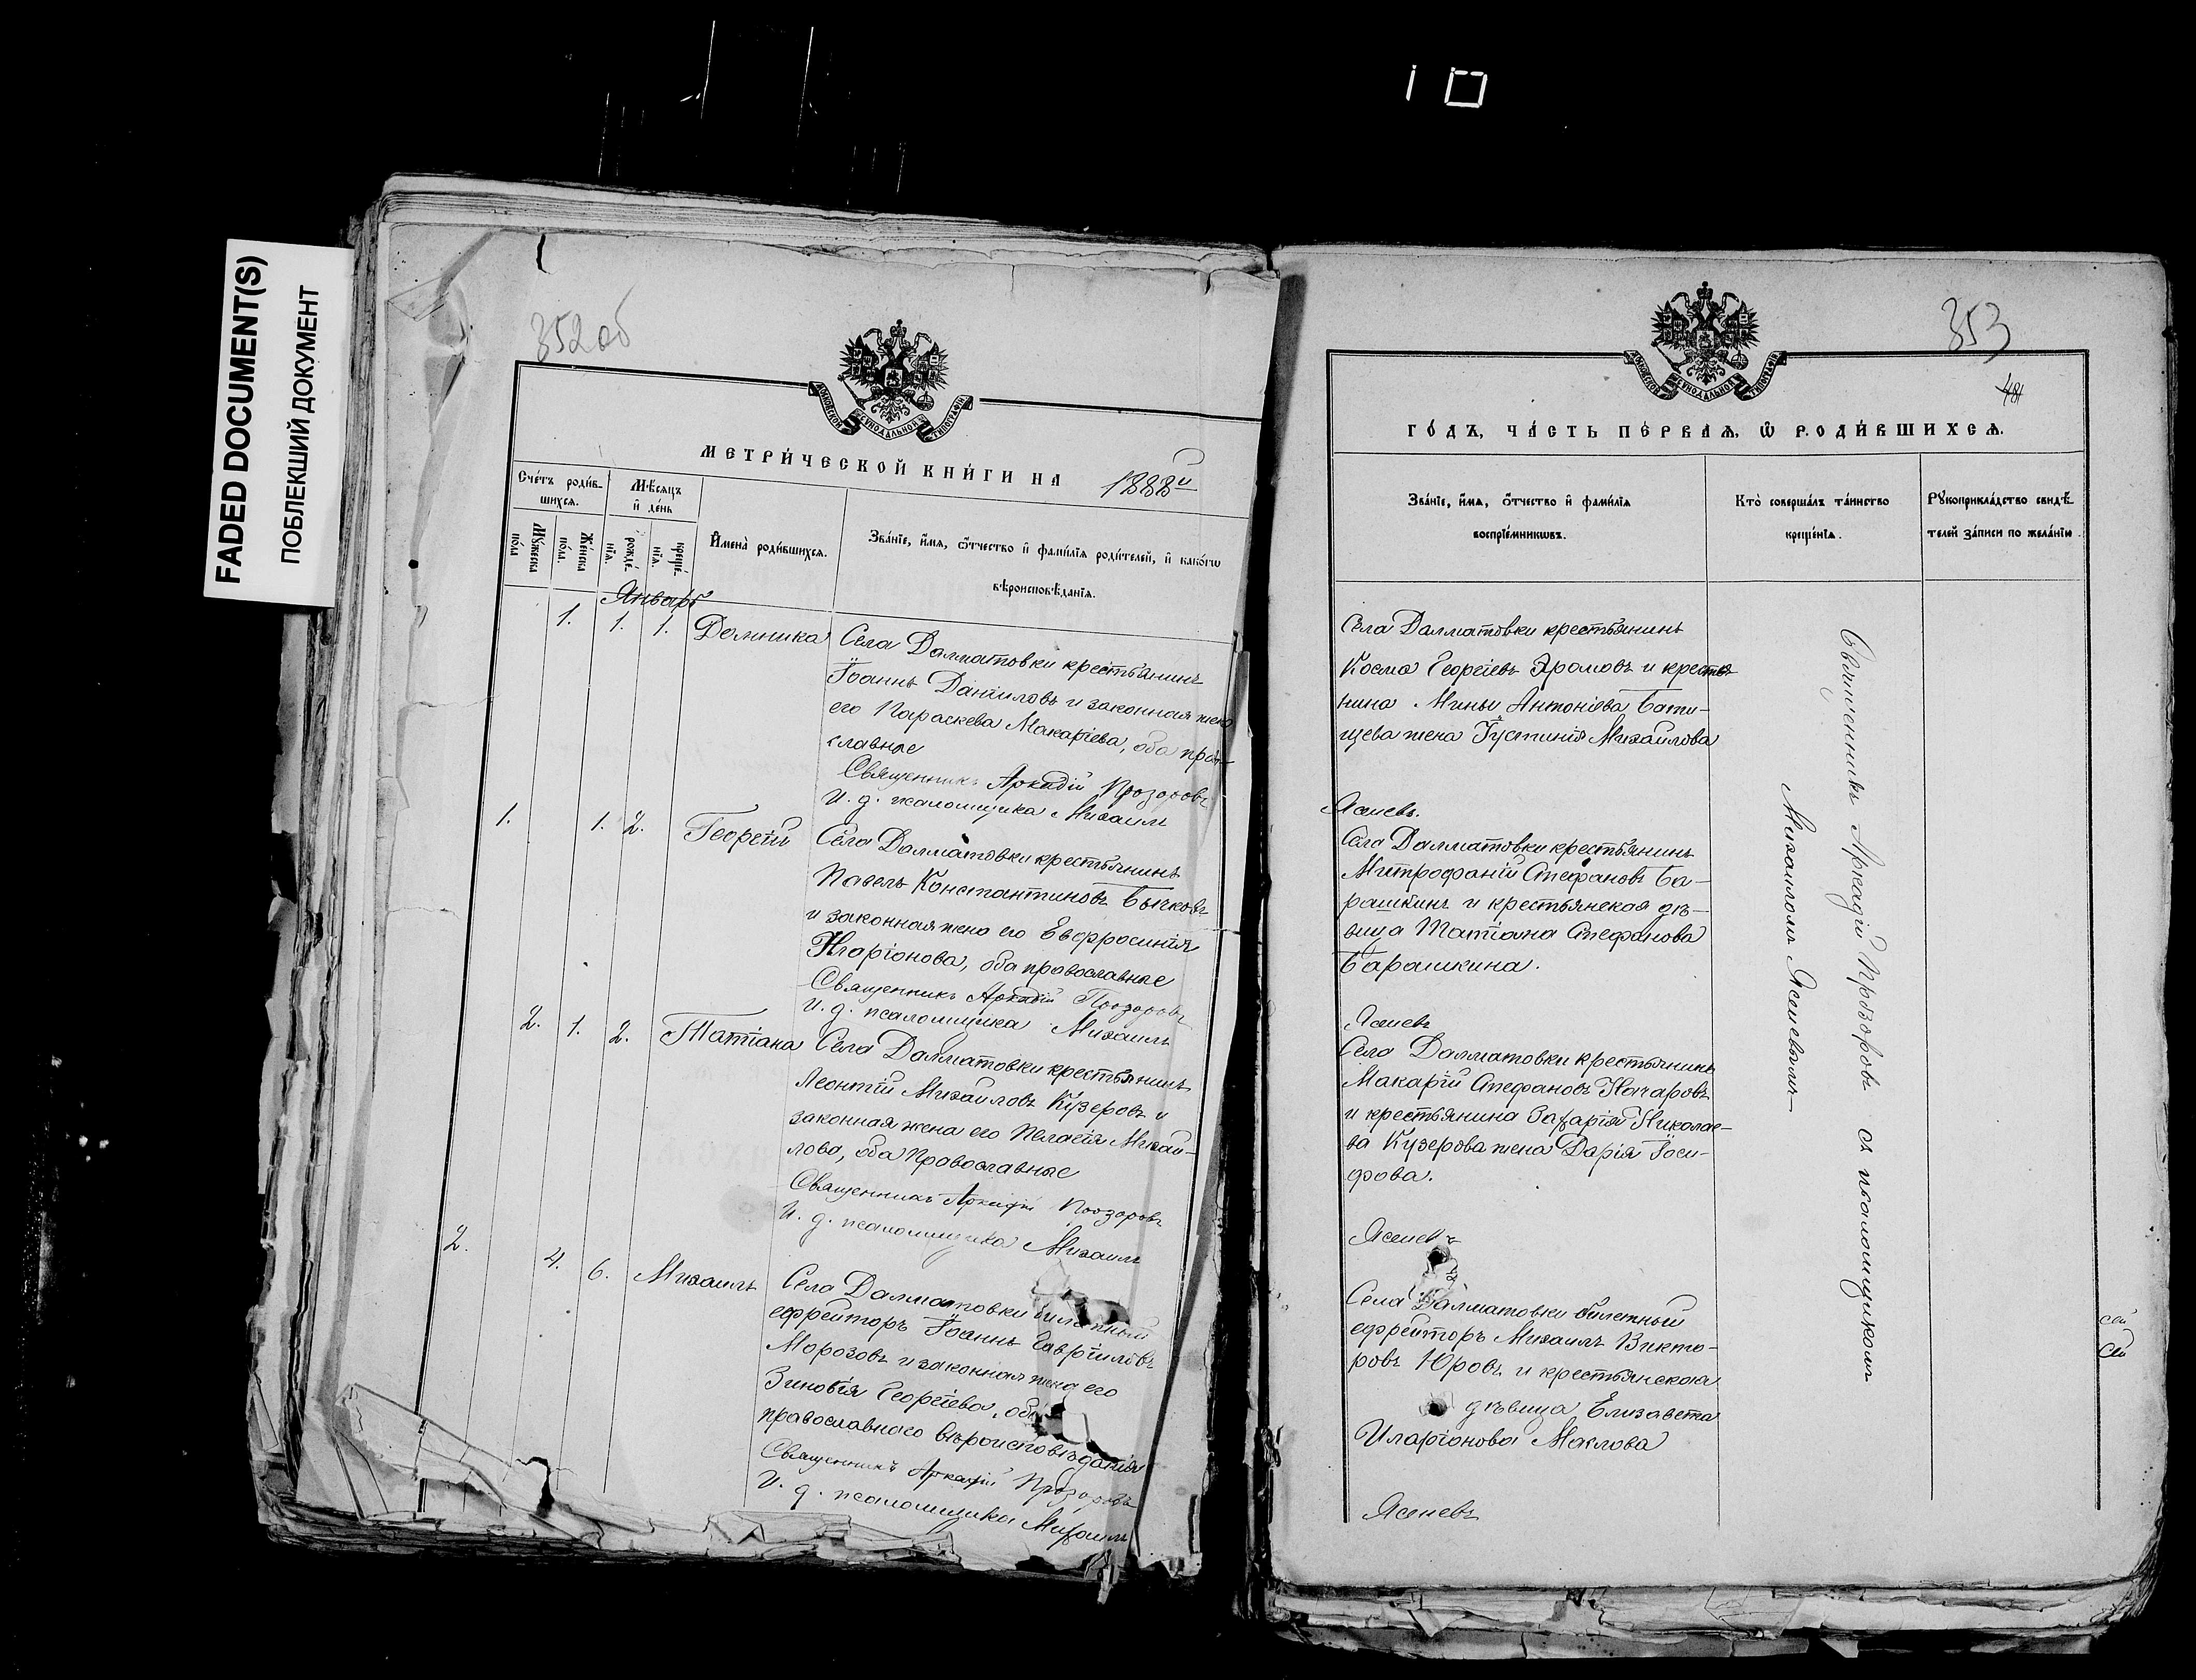 FADED DOCUMENT(S)
ПОБЛЕКШИЙ ДОКУМЕНТ
352 об
МОСКОВСКОЙ СѴНОДАЛЬНОЙ ТИПОГРАФІИ
МЕТРИ́ЧЕСКОЙ КНИ́ГИ НА 1888й
Сче́тъ роди́в-
шихсѧ.
Мѣ́сѧцъ
и҆ де́нь
Мꙋ́жеска
по́ла
Же́нска
по́ла.
рожде́-
нїѧ.
креще́-
нїѧ.
И҆мена̀ роди́вшихсѧ.
Зва́нїе, и҆́мѧ, ѻ҆́тчество и҆ фами́лїѧ роди́телей, и҆ како́гѡ
вѣроисповѣ́данїѧ.
Январь
1. 1. 1. Домника Села Далматовки крестьянинъ
Іоаннъ Даніиловъ и законная жена
его Параскева Макаріева, оба право-
славные
Священникъ Аркадій Прозоровъ
И. д. псаломщика Михаилъ
1. 1. 2. Георгій Села Далматовки крестьянинъ
Павелъ Константиновъ Бычковъ
и законная жена его Евфросинія
Иларіонова, оба православные
Священникъ Аркадій Прозоровъ
И. д. псаломщика Михаилъ
2. 1. 2. Татіана Села Далматовки крестьянинъ
Леонтій Михайловъ Кузеровъ и
законная жена его Пелагія Михай-
лова, оба Православные
Священникъ Аркадій Прозоровъ
И. д. псаломщика Михаилъ
2. 4. 6. Михаилъ Села Далматовки билетный
ефрейторъ Іоаннъ Гавріиловъ
Морозовъ и законная жена его
Зиновія Георгіева, оба
православнаго вѣроисповѣданія
Священникъ Аркадій Прозоровъ
И. д. псаломщика Михаилъ
353
МОСКОВСКОЙ СѴНОДАЛЬНОЙ ТИПОГРАФІИ
ГО́ДЪ, ЧА́СТЬ ПЕ́РВАѦ, Ѡ҆ РОДИ́ВШИХСѦ.
Зва́нїе, и҆́мѧ, ѻ҆́тчество и҆ фами́лїѧ
воспрїе́мникѡвъ.
Кто̀ соверша́лъ та́инство
креще́нїѧ.
Рꙋкоприкла́дство свидѣ́-
телей за́писи по жела́нїю.
Села Далматовки крестьянинъ
Косма Георгіевъ Храмовъ и крестья-
нина Мины Антоніева Бати-
щева жена Іустинія Михайлова
Ясневъ.
Села Далматовки крестьянинъ
Митрофаній Стефановъ Ба-
рашкинъ и крестьянская дѣ-
вица Татіана Стефанова
Барашкина.
Ясневъ
Села Далматовки крестьянинъ
Макарій Стефановъ Гончаровъ
и крестьянина Захарія Николае-
ва Кузерова жена Дарія Іоси-
фова.
Ясневъ
Села Далматовки билетный
ефрейторъ Михаилъ Викто-
ровъ Юровъ и крестьянская
дѣвица Елизавета
Иларіонова Маклова
Ясневъ
Священникъ Аркадій Прозоровъ съ псаломщикомъ
Михаиломъ Ясневымъ